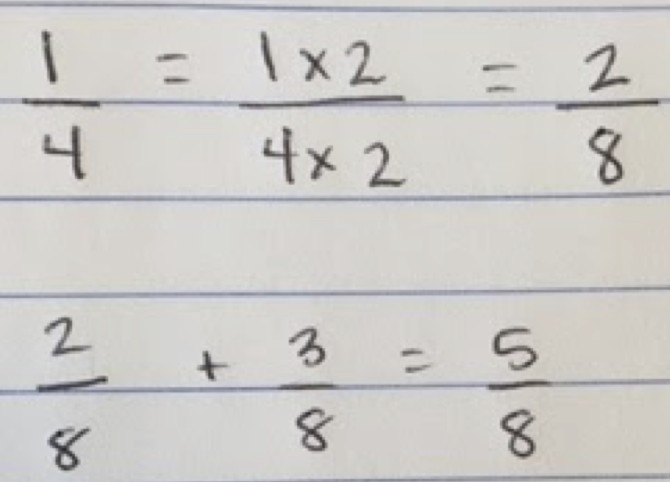 1/4 = 1 x 2/4 x 2 = 2/8
2/8 + 3/8 = 5/8